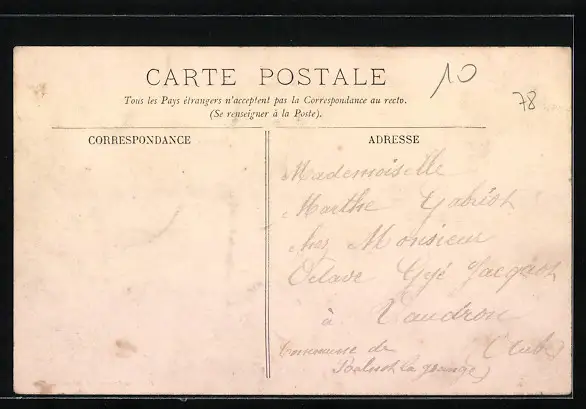 CARTE POSTALE
10
78
Tous les Pays étrangers n'acceptent pas la Correspondance au recto.
(Se renseigner à la Poste).
CORRESPONDANCE
ADRESSE
Mademoiselle
Marthe Gabriot
chez Monsieur
Octave Jacquot
à Vaudron
Commune de (Aube)
la grange)